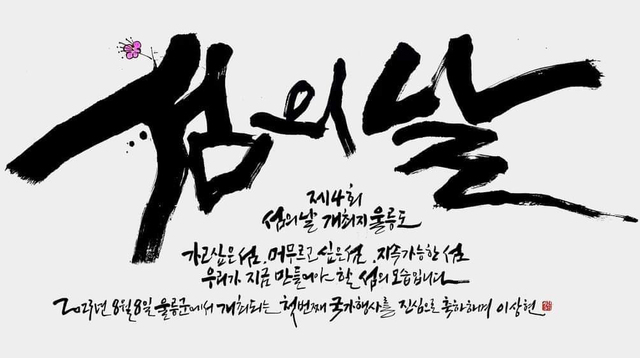 섬의 날
제4회
섬의날 개최지 울릉도
가고싶은 섬, 머무르고 싶은 섬, 지속가능한 섬
우리가 지금 만들어야 할 섬의 모습입니다
2023년 8월 8일 울릉군에서 개최되는 첫번째 국가행사를 진심으로 축하하며 이상현